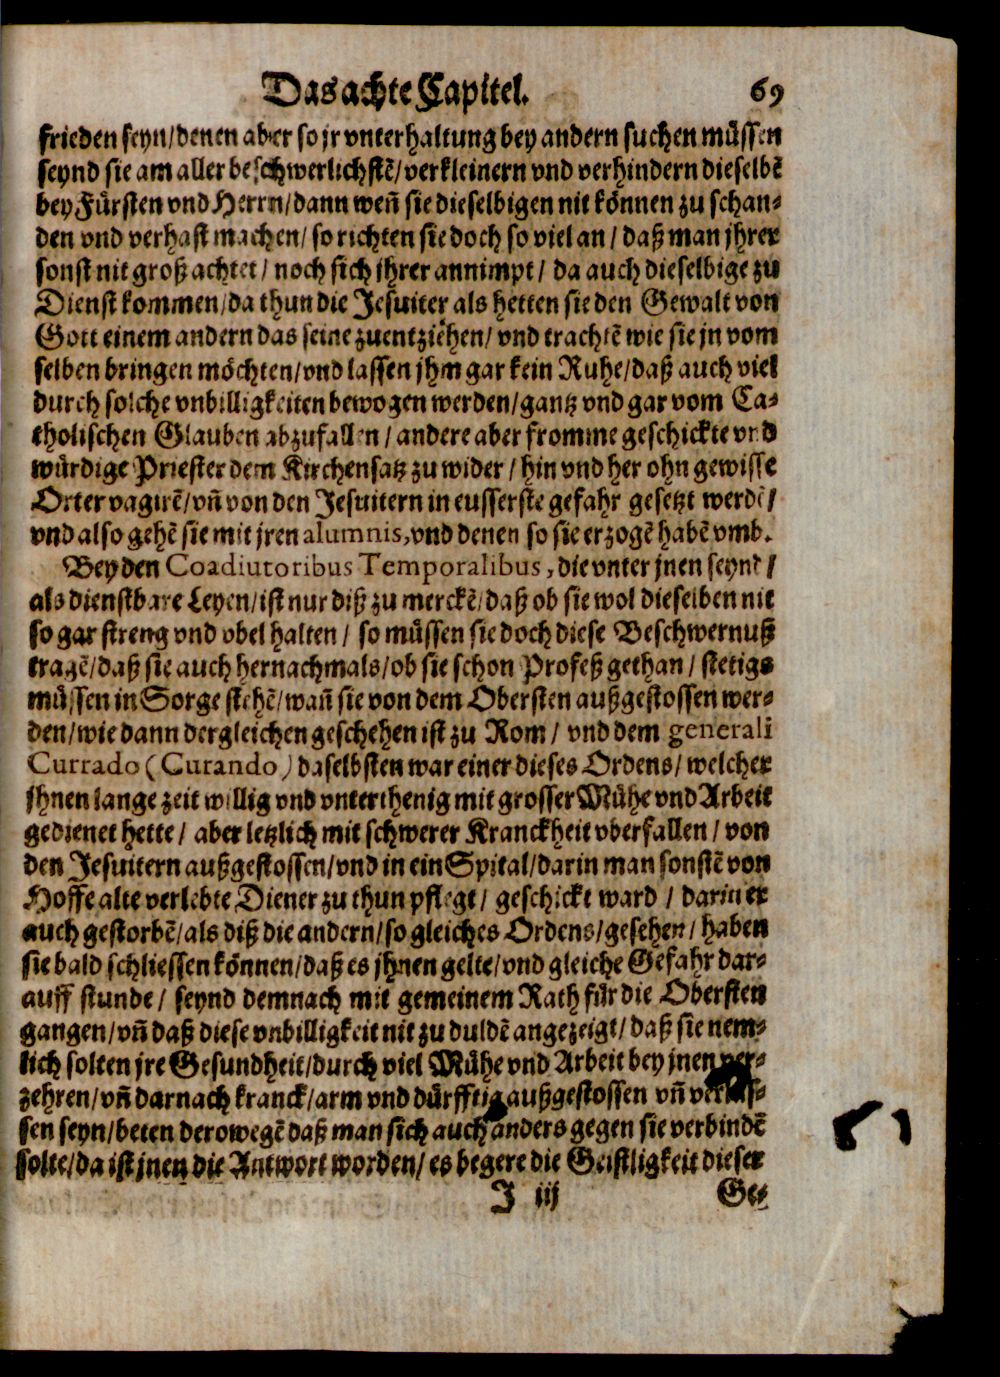 Das achte Capitel. 69
frieden seyn/denen aber so jr vnterhaltung bey andern suchen müssen
seynd sie am aller beschwerlichstē/verkleinern vnd verhindern dieselbē
bey Fürsten vnd Herrn/dann weñ sie dieselbigen nit können zu schan-
den vnd verhast machen/ so richten sie doch so viel an / daß man jhrer
sonst nit groß achtet / noch sich jhrer annimpt / da auch dieselbige zu
Dienst kommen/da thun die Jesuiter als hetten sie den Gewalt von
Gott einem andern das seine zuentziehen/ vnd trachtē wie sie jn vom
selben bringen möchten/vnd lassen jhm gar kein Ruhe/daß auch viel
durch solche vnbilligkeiten bewogen werden/gantz vnd gar vom Ca-
tholischen Glauben abzufallen / andere aber fromme geschickte vnd
würdige Priester dem Kirchensatz zu wider / hin vnd her ohn gewisse
Orter vagirē/vñ von den Jesuitern in eusserste gefahr gesetzt werdē/
vnd also gehē sie mit jren alumnis,vnd denen so sie erzogē habē vmb.
Bey den Coadiutoribus Temporalibus, die vnter jnen seynd/
als dienstbare Leyen/ist nur diß zu merckē/daß ob sie wol dieselben nit
so gar streng vnd vbel halten / so müssen sie doch diese Beschwernuß
tragē/daß sie auch hernachmals/ob sie schon Profeß gethan / stetigs
müssen in Sorge stehē/wañ sie von dem Obersten außgestossen wer-
den/wie dann dergleichen geschehen ist zu Rom / vnd dem generali
Currado (Curando) daselbsten war einer dieses Ordens/ welcher
jhnen lange zeit willig vnd vnterthenig mit grosser Mühe vnd Arbeit
gedienet hette / aber letzlich mit schwerer Kranckheit vberfallen / von
den Jesuitern außgestossen/vnd in ein Spital/darin man sonstē von
Hoffe alte verlebte Diener zu thun pflegt / geschickt ward / darin er
auch gestorbē/als diß die andern/so gleiches Ordens/gesehen / haben
sie bald schliessen können/daß es jhnen gelte/vnd gleiche Gefahr dar-
auff stunde / seynd demnach mit gemeinem Rath für die Obersten
gangen/vñ daß diese vnbilligkeit nit zu duldē angezeigt/ daß sie nem-
lich solten jre Gesundheit/durch viel Mühe vnd Arbeit bey jnen ver-
zehren/vñ darnach kranck/arm vnd dürfftig außgestossen vñ verlas-
sen seyn/beten derowegē daß man sich auch anders gegen sie verbindē
solte/da ist jnen die Antwort worden/ es begere die Geistligkeit dieser
J iij Ge-